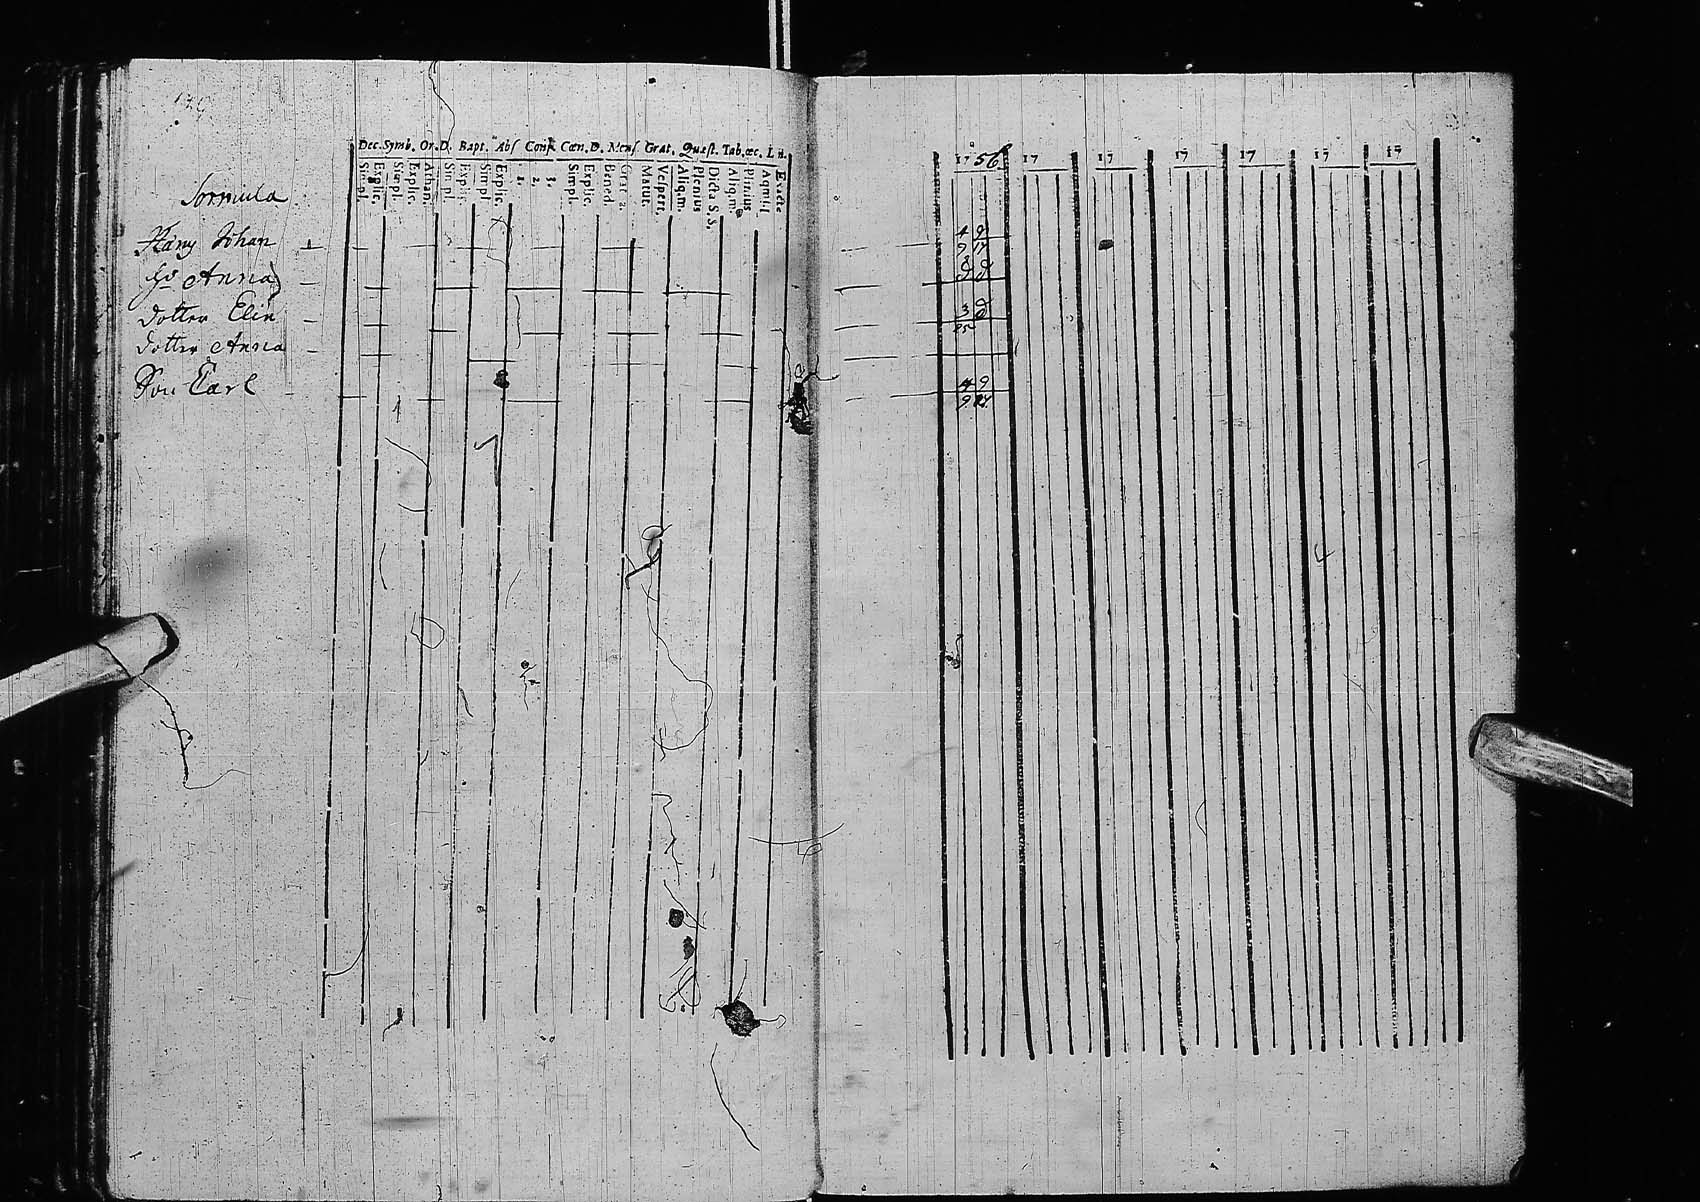 149
Dec. Symb. Or. D. Bapt. Abs Conf. Cœn. D. Mens Grat. Quæst. Tab. œc. L n.
Simpl. Explic. Simpl. Explic. Athan. Simpl. Explic. Simpl Explic. 1. 2. 3. Simpl. Explic. Bened. Grat 2. Matut. Vespert. Aliq.m. Plenius Dicta S. S. Aliq.m. Plenius Exacte
1756 17 17 17 17 17 17
Sormula
Johan
4 9
9 17
Hu Anna
8 8
dotter Elin
3 8
25
dotter Anna
Son Carl
4 9
9